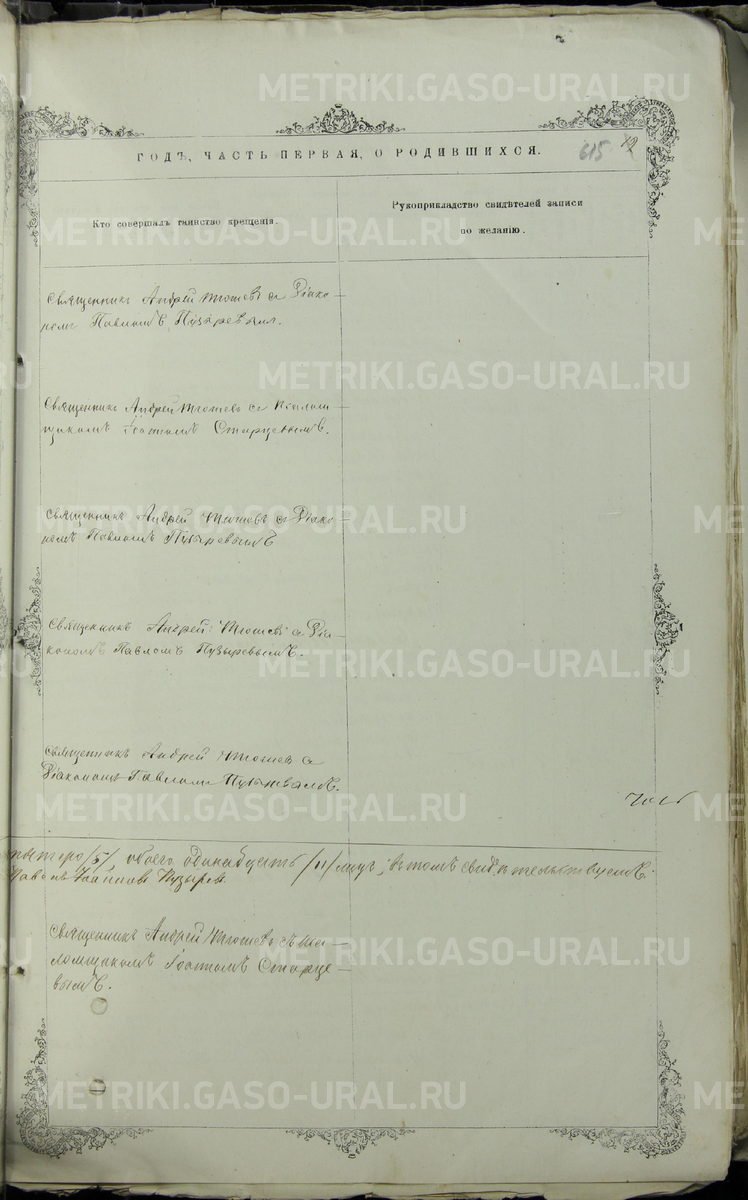 METRIKI.GASO-URAL.RU
ГОДЪ, ЧАСТЬ ПЕРВАЯ, О РОДИВШИХСЯ.
615
Кто совершалъ таинство крещенія.
Рукоприкладство свидѣтелей записи
по желанію.
Священникъ Андрей Тюшевъ съ Діако-
номъ Павломъ Пузыревымъ.
Священникъ Андрей Тюшевъ съ Псалом-
щикомъ Іоанномъ Старцевымъ.
Священникъ Андрей Тюшевъ съ Діако-
номъ Павломъ Пузыревымъ
Священникъ Андрей Тюшевъ съ Діа-
кономъ Павломъ Пузыревымъ.
Священникъ Андрей Тюшевъ съ
Діакономъ Павломъ Пузыревымъ.
пятеро /5/, обоего одинадцать /11/ лицъ, въ томъ свидѣтельствуемъ:
Павелъ Пузыревъ.
Священникъ Андрей Тюшевъ съ Пса-
ломщикомъ Іоанномъ Старце-
вымъ.